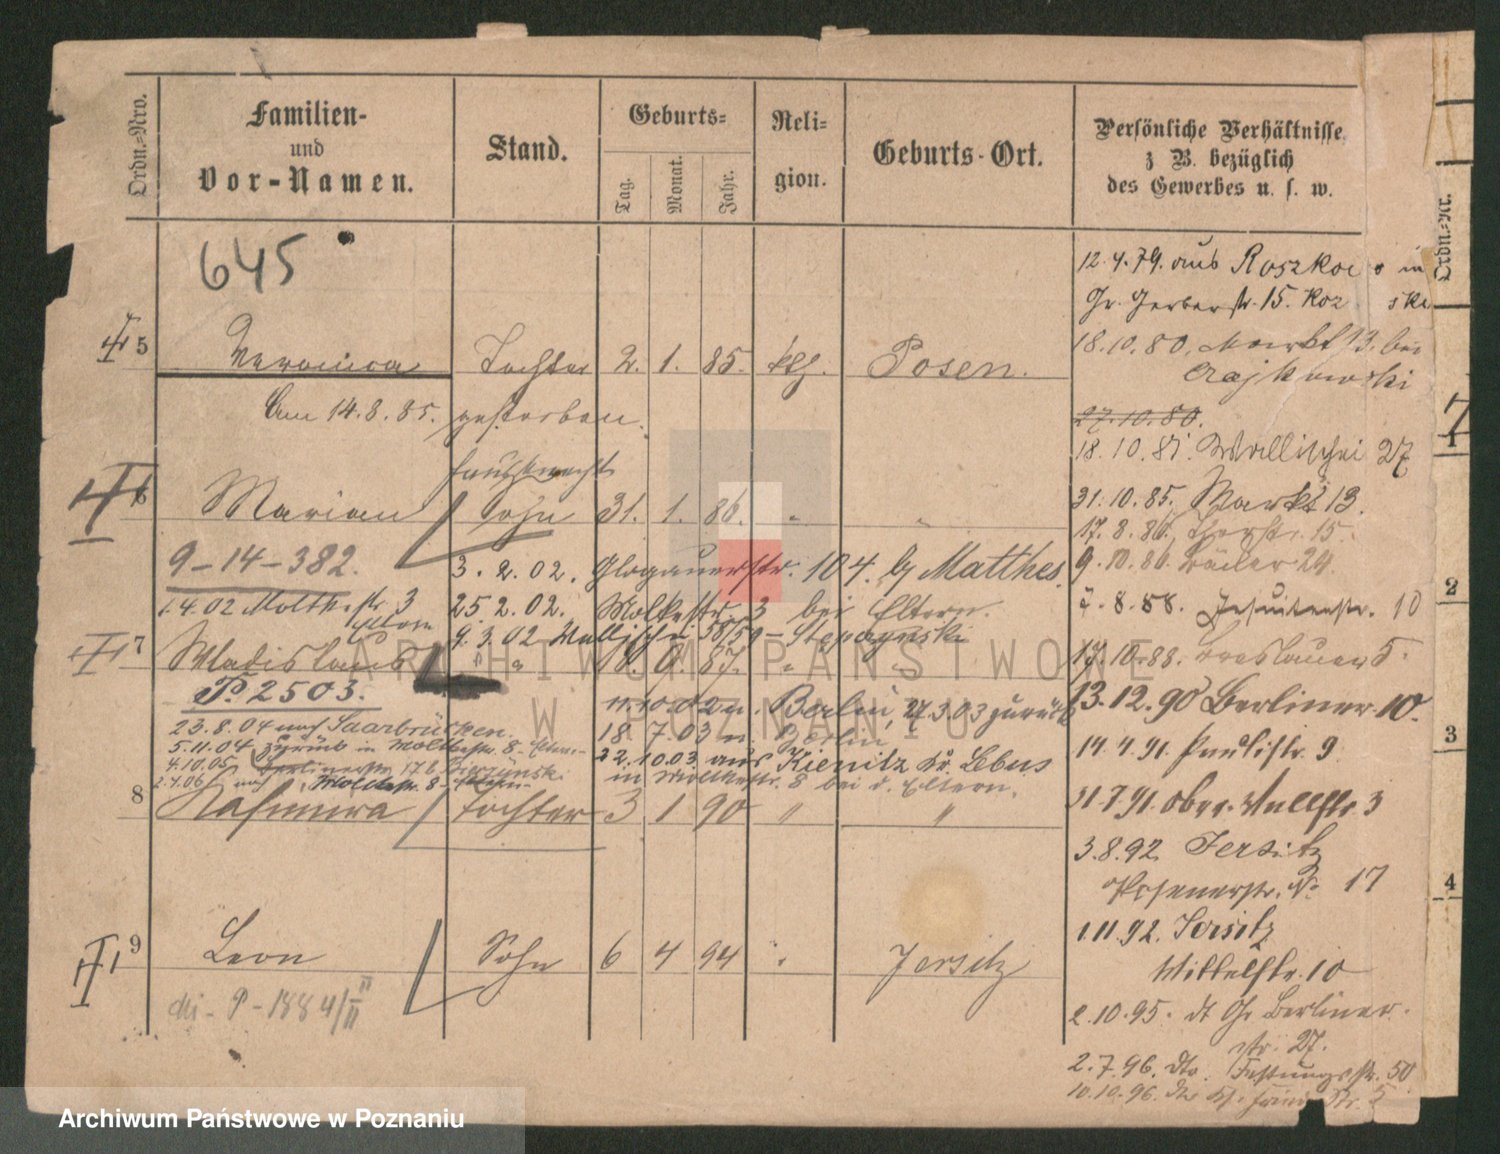 Ordn.-Nro.
Familien-
und
Vor-Namen.
Stand.
Geburts-
Tag.
Monat.
Jahr.
Reli-
gion.
Geburts-Ort.
Persönliche Verhältnisse
z B. bezüglich
des Gewerbes u. s. w.
Ordn.-Nr.
645
5 Veronica Tochter 2. 1. 85. kth. Posen.
Am 14.8.85. gestorben.
6 Marian Sohn 31. 1. 86. " "
9-14-382.
3.2.02. Glogauerstr. 104. b/ Matthes.
1.4.02 Moltkestr 3
25.2.02. Molkestr. 3 bei Eltern.
9.3.02 Wallischei 58/59 - Stepczynski
7 Wladislaus " 87. " "
P. 2503.
11.10.02 n. Berlin, 27.3.03 zurück
23.8.04 nach Saarbrücken.
18.7.03 n. Berlin
5.11.04 zurück in Moltkestr. 8- Eltern-
22.10.03 aus Kienitz Kr. Lebus
4.10.05 Berlinerstr 17b.
in Moltkestr. 8 bei d. Eltern.
2.4.06 nach Moltkestr. 8- Eltern-
8 Kasimira Tochter 3 1 90 " "
9 Leon Sohn 6 4 94 " Jersitz
P-1884/II
12.4.79. aus
Gr. Gerberstr. 15.
18.10.80. Markt 13. bei
Czajkowski
27.10.80.
18.10.81. Wallischei 27
31.10.85. Markt 13.
17.8.86. 15.
9.10.86. 24.
7.8.88. Jesuitenstr. 10
17.10.88. Breslauer 5.
13.12.90 Berliner 10.
14.4.91. Paulistr. 9.
31.7.91. Ober Wallstr 3
3.8.92. Jersitz
Posenerstr. No 17
1.11.92. Jersitz
Mittelstr. 10
2.10.95. dt Gr Berliner-
str. 27.
2.7.96. dto. Festungsstr. 50
10.10.96. dto
1
2
3
4
ARCHIWUM PAŃSTWOWE
W POZNANIU
Archiwum Państwowe w Poznaniu